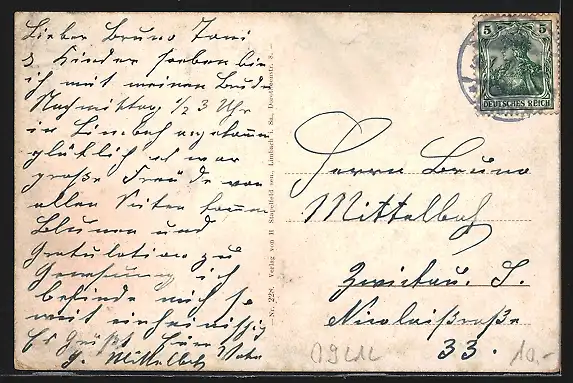 Lieber Bruno Toni
& Kinder soeben bin
ich mit meinen Bruder
Nachmittag 1/2 3 Uhr
in Limbach angekommen
glücklich es war
große Freude von
allen Seiten
Blumen und
Gratulation zu
Genesung ich
befinde mich so
weit
Es Grüßt Euer
G. Mittelbach
Nr. 228. Verlag von H Stapelfeld sen., Limbach i. Sa., Dorotheenstr. 8.
5 5
DEUTSCHES REICH
Herrn Bruno
Mittelbach
Zwickau. S.
Nicolaistraße
33.
10.-